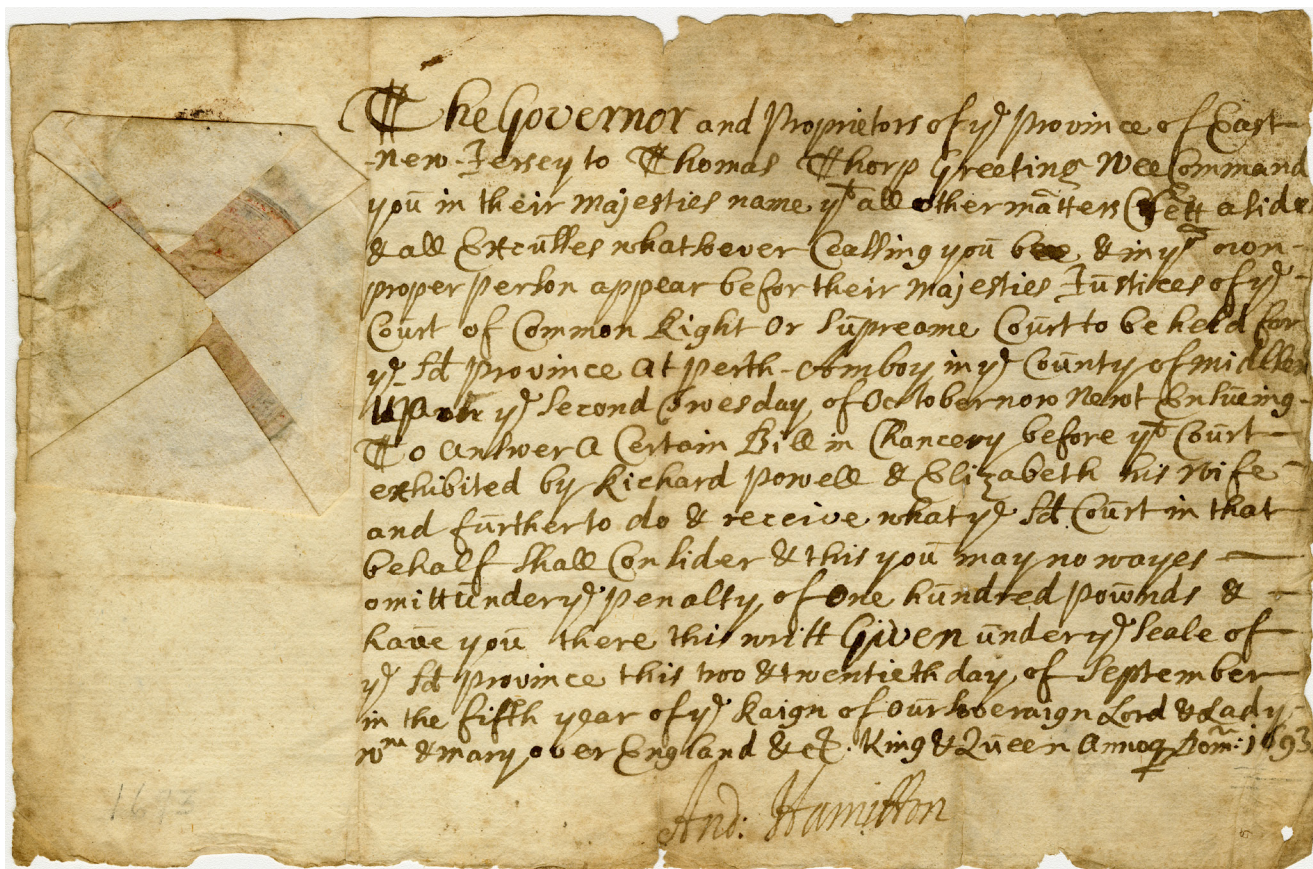 The Governor and Proprietors of ye Province of East
-new-Jersey to Thomas Thorp Greeting Wee Command
you in their Majesties name yt all other matters sett aside
& all Excusses whatsoever Ceassing you bee & in yr own-
proper person appear befor their Majesties Justices of ye-
Court of Common Right Or Supreame Court to be held for
ye Sd Province at Perth-Amboy in ye County of Midlesex
Upon ye Second Twesday of October now Next Ensueing-
To Answer A Certain Bill in Chancery before ye Court
exhibited by Richard Powell & Elizabeth his wife
and further to do & receive what ye Sd Court in that
behalf Shall Consider & this you may no wayes
omitt under ye Penalty of One hundred Pownds &
have you there this writt Given under ye Seale of
ye Sd Province this two & twentieth day of September
in the fifth year of ye Raign of Our Soveraign Lord & Lady
Wm & Mary over England &c. King & Queen Annoq Dom: 1693
And: Hamilton